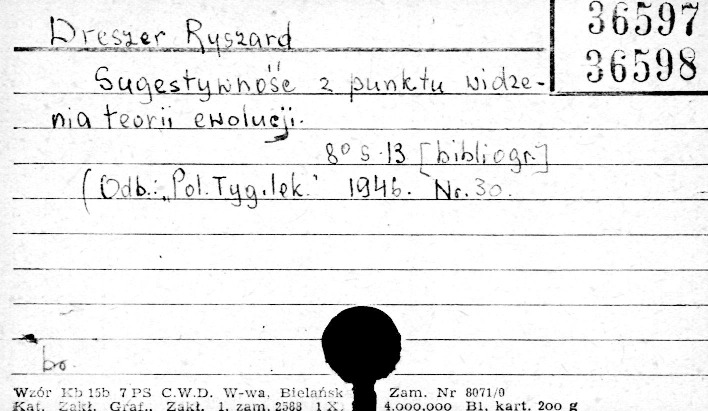 36597
36598
Dreszer Ryszard
Sugestywność z punktu widze-
nia teorii ewolucji.
8° s. 13 [bibliogr.]
(Odb.: „Pol. Tyg. lek." 1946. Nr. 30.
bo.
Wzór Kb 15b 7 PS C.W.D. W-wa, Bielańsk Zam. Nr 8071/0
Kat. Zakł. Graf., Zakł. 1. zam. 2588 1 X 4.000.000 B1. kart. 200 g